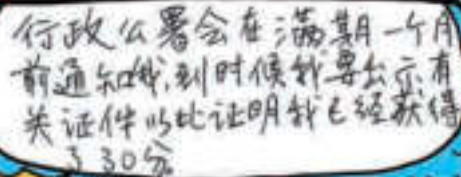 行政公署会在满期一个月
前通知我,到时候我要出示有
关证件以此证明我已经获得
了30分